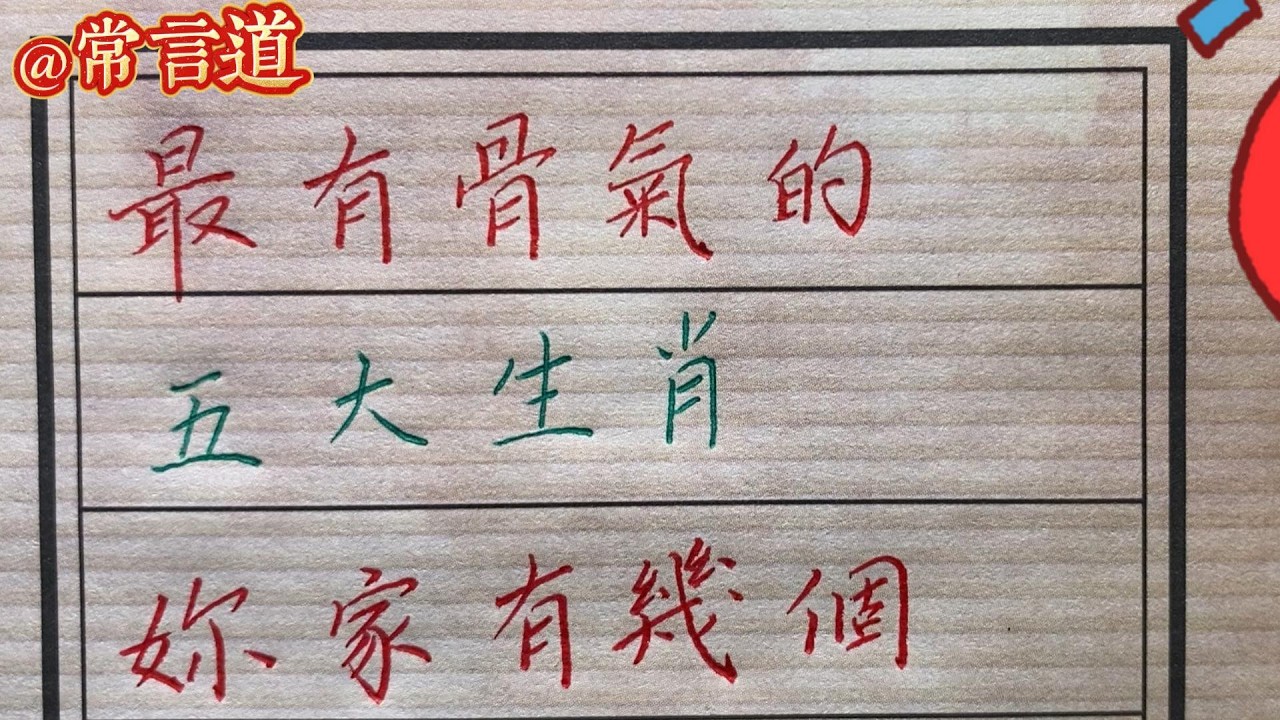 @常言道
最有骨氣的
五大生肖
妳家有幾個